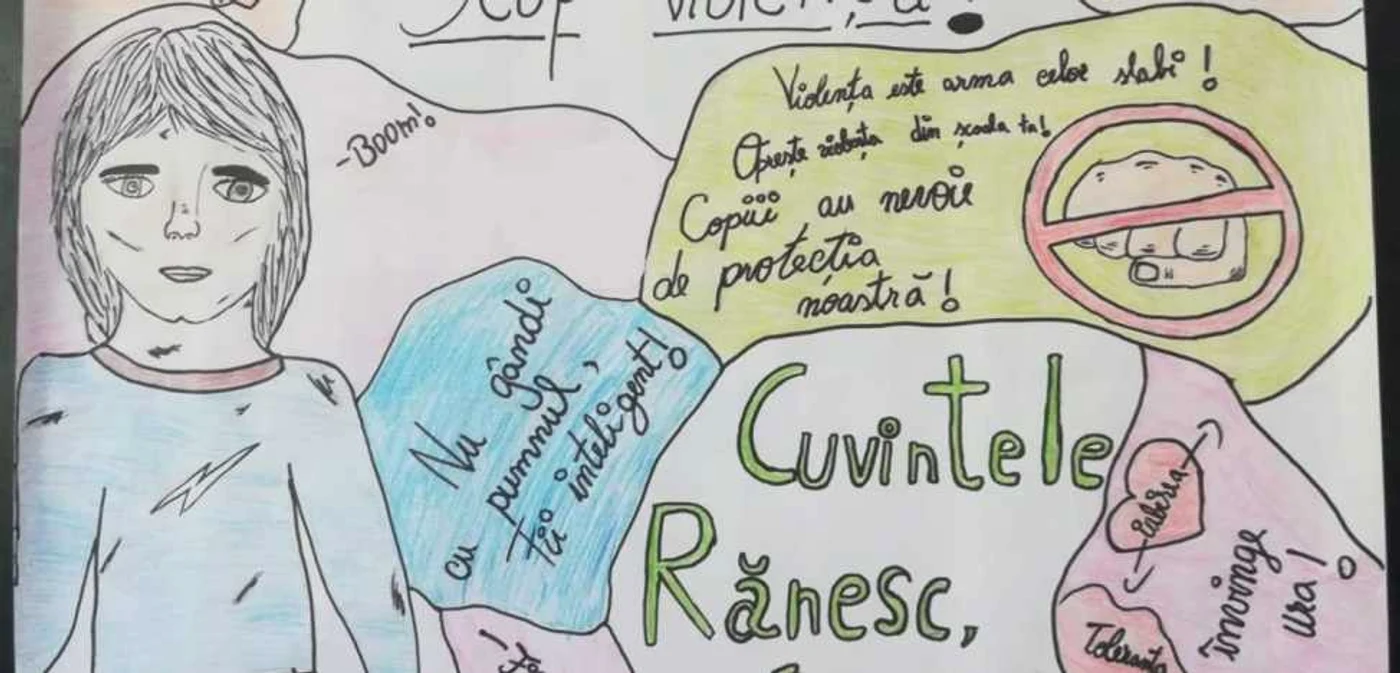 Stop violența!
-Boom!
Violența este arma celor slabi!
Oprește violența din școala ta!
Copiii au nevoie
de protecția
noastră!
Nu gândi
cu pumnul,
fii inteligent!
Cuvintele
Rănesc,
iubirea
învinge
ura!
Toleranța